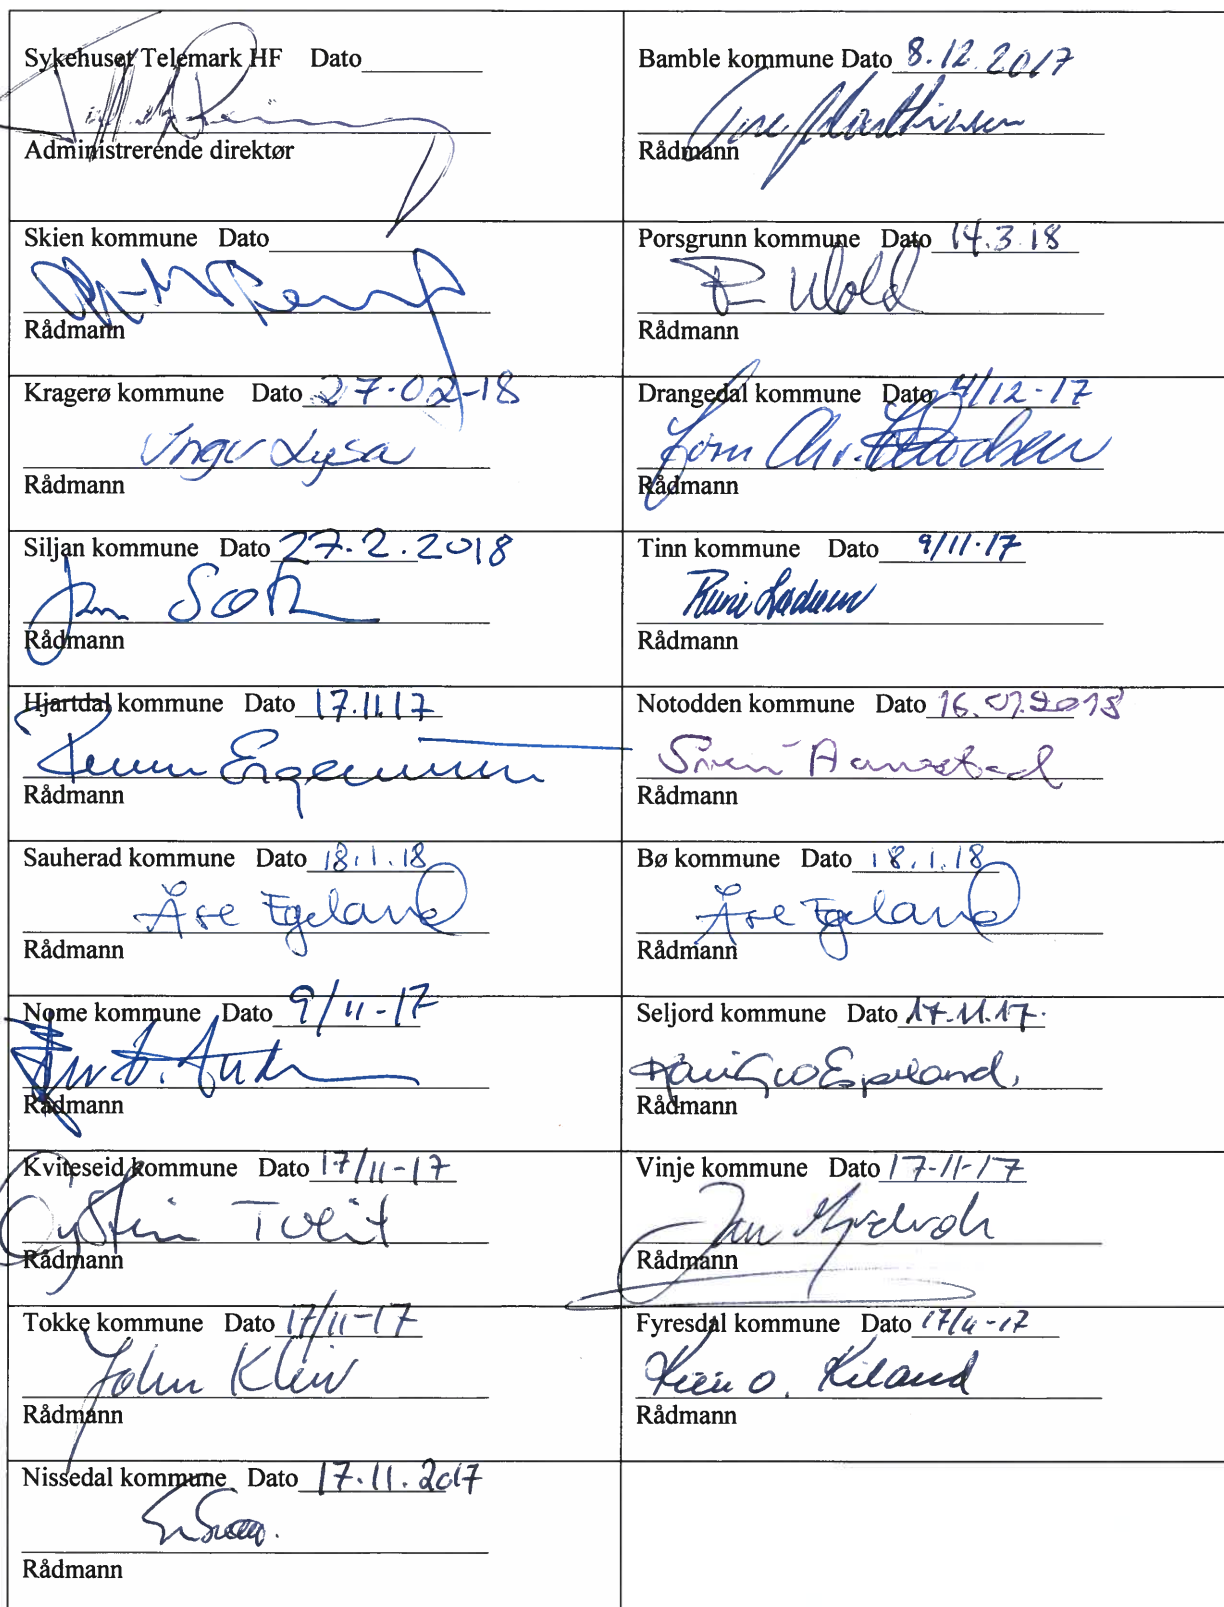 Sykehuset Telemark HF Dato
Administrerende direktør
Bamble kommune Dato 8.12.2017
Tore Marthinsen
Rådmann
Skien kommune Dato
Rådmann
Porsgrunn kommune Dato 14.3.18
Per Wold
Rådmann
Kragerø kommune Dato 27-02-18
Inger Lysa
Rådmann
Drangedal kommune Dato 4/12-17
Jørn Chr.
Rådmann
Siljan kommune Dato 27.2.2018
Jan Sæth
Rådmann
Tinn kommune Dato 9/11-17
Rune
Rådmann
Hjartdal kommune Dato 17.11.17
Rådmann
Notodden kommune Dato 16.01.2018
Rådmann
Sauherad kommune Dato 18.1.18
Åse Egeland
Rådmann
Bø kommune Dato 18.1.18
Åse Egeland
Rådmann
Nome kommune Dato 9/11-17
Rådmann
Seljord kommune Dato 17.11.17.
Rådmann
Kviteseid kommune Dato 17/11-17
Øystein Tveit
Rådmann
Vinje kommune Dato 17-11-17
Jan Myrekrok
Rådmann
Tokke kommune Dato 17/11-17
John Kleiv
Rådmann
Fyresdal kommune Dato 17/11-17
Ketil O. Kiland
Rådmann
Nissedal kommune Dato 17.11.2017
Rådmann